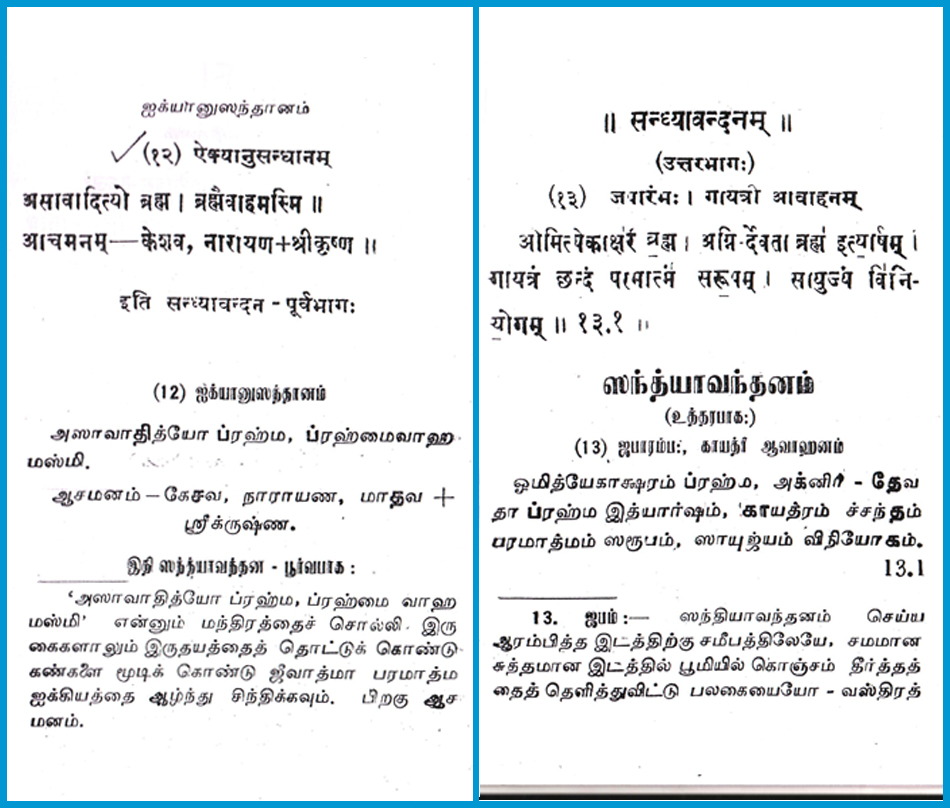 ஐக்யானுஸந்தானம்
(१२) ऐक्यानुसन्धानम्
असावादित्यो ब्रह्म । ब्रह्मैवाहमस्मि ॥
आचमनम्—केशव, नारायण+श्रीकृष्ण ॥
इति सन्ध्यावन्दन - पूर्वभागः
(12) ஐக்யானுஸந்தானம்
அஸாவாதித்யோ ப்ரஹ்ம, ப்ரஹ்மைவாஹ
மஸ்மி.
ஆசமனம் – கேசவ, நாராயண, மாதவ +
ஸ்ரீக்ருஷ்ண.
இதி ஸந்த்யாவந்தன - பூர்வபாக :
‘அஸாவாதித்யோ ப்ரஹ்ம, ப்ரஹ்மை வாஹ
மஸ்மி’ என்னும் மந்திரத்தைச் சொல்லி இரு
கைகளாலும் இருதயத்தைத் தொட்டுக் கொண்டு
கண்களை மூடிக் கொண்டு ஜீவாத்மா பரமாத்ம
ஐக்கியத்தை ஆழ்ந்து சிந்திக்கவும். பிறகு ஆச
மனம்.
॥ सन्ध्यावन्दनम् ॥
(उत्तरभागः)
(१३) जपारंभः । गायत्री आवाहनम्
ओमित्येकाक्षरं ब्रह्म । अग्निर्देवता ब्रह्म॑ इत्यार्षम् ।
गायत्रं छन्दं परमात्मं॑ सरूपम् । सायुज्यं वि॑नि-
योगम् ॥ १३.१ ॥
ஸந்த்யாவந்தனம்
(உத்தரபாக:)
(13) ஜபாரம்ப:, காயத்ரீ ஆவாஹனம்
ஓமித்யேகாக்ஷரம் ப்ரஹ்ம, அக்னிர் - தேவ
தா ப்ரஹ்ம இத்யார்ஷம், காயத்ரம் ச்சந்தம்
பரமாத்மம் ஸரூபம், ஸாயுஜ்யம் விநியோகம்.
13.1
13. ஜபம்:— ஸந்தியாவந்தனம் செய்ய
ஆரம்பித்த இடத்திற்கு சமீபத்திலேயே, சமமான
சுத்தமான இடத்தில் பூமியில் கொஞ்சம் தீர்த்தத்
தைத் தெளித்துவிட்டு பலகையையோ - வஸ்திரத்